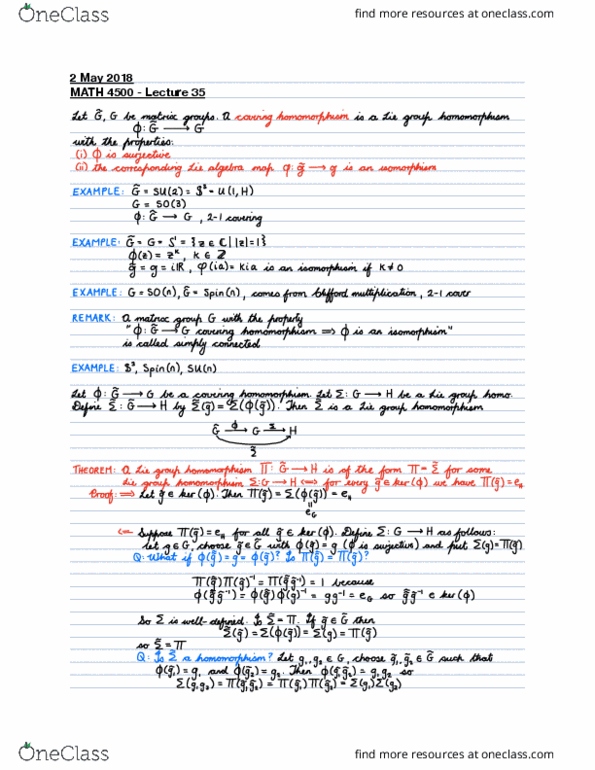 OneClass
find more resources at oneclass.com
2 May 2018
MATH 4500 - Lecture 35
Let G̃, G be matrix groups. A covering homomorphism is a Lie group homomorphism
ϕ: G̃ ⟶ G
with the properties:
(i) ϕ is surjective
(ii) the corresponding Lie algebra map φ: g̃ ⟶ g is an isomorphism
EXAMPLE: G̃ = SU(2) = S³ = U(1, H)
G = SO(3)
ϕ: G̃ ⟶ G , 2-1 covering
EXAMPLE: G̃ = G = S' = {z ∈ ℂ | |z|=1}
ϕ(z) = zᵏ, k ∈ ℤ
g̃ = g = iℝ, φ(ia) = kia is an isomorphism if k ≠ 0
EXAMPLE: G = SO(n), G̃ = Spin(n), comes from Clifford multiplication, 2-1 cover
REMARK: A matrix group G with the property
"ϕ: G̃ ⟶ G covering homomorphism ⟹ ϕ is an isomorphism"
is called simply connected
EXAMPLE: S³, Spin(n), SU(n)
Let ϕ: G̃ ⟶ G be a covering homomorphism. Let Σ: G ⟶ H be a Lie group homo.
Define Σ̃: G̃ ⟶ H by Σ̃(g̃) = Σ(ϕ(g̃)). Then Σ̃ is a Lie group homomorphism
G̃ ⟶ϕ G ⟶Σ H
Σ̃
THEOREM: A Lie group homomorphism Π: G̃ ⟶ H is of the form Π = Σ̃ for some
Lie group homomorphism Σ: G ⟶ H ⟺ for every g̃ ∈ ker(ϕ) we have Π(g̃) = e_H
Proof: ⟹ Let g̃ ∈ ker(ϕ). Then Π(g̃) = Σ(ϕ(g̃)) = e_H
||
e_G
⟸ Suppose Π(g̃) = e_H for all g̃ ∈ ker(ϕ). Define Σ: G ⟶ H as follows:
let g ∈ G, choose g̃ ∈ G̃ with ϕ(g̃) = g (ϕ is surjective) and put Σ(g) = Π(g̃)
Q: What if ϕ(g̃) = g = ϕ(g̃̃)? Is Π(g̃) = Π(g̃̃)?
Π(g̃)Π(g̃̃)⁻¹ = Π(g̃g̃̃⁻¹) = 1 because
ϕ(g̃g̃̃⁻¹) = ϕ(g̃)ϕ(g̃̃)⁻¹ = gg⁻¹ = e_G so g̃g̃̃⁻¹ ∈ ker(ϕ)
So Σ is well-defined. Is Σ̃ = Π. If g̃ ∈ G̃ then
Σ̃(g̃) = Σ(ϕ(g̃)) = Σ(g) = Π(g̃)
so Σ̃ = Π
Q: Is Σ a homomorphism? Let g₁, g₂ ∈ G, choose g̃₁, g̃₂ ∈ G̃ such that
ϕ(g̃₁) = g₁ and ϕ(g̃₂) = g₂. Then ϕ(g̃₁g̃₂) = g₁g₂ so
Σ(g₁g₂) = Π(g̃₁g̃₂) = Π(g̃₁)Π(g̃₂) = Σ(g₁)Σ(g₂)
OneClass
find more resources at oneclass.com